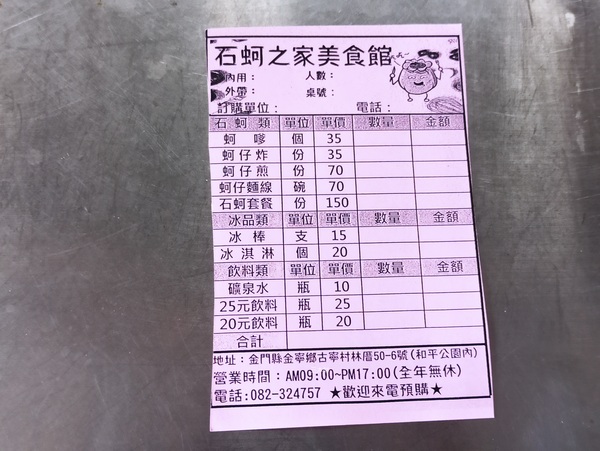 石蚵之家美食館
內用： 人數：
外帶： 桌號：
訂購單位： 電話：
石蚵類 單位 單價 數量 金額
蚵嗲 個 35
蚵仔炸 份 35
蚵仔煎 份 70
蚵仔麵線 碗 70
石蚵套餐 份 150
冰品類 單位 單價 數量 金額
冰棒 支 15
冰淇淋 個 20
飲料類 單位 單價 數量 金額
礦泉水 瓶 10
25元飲料 瓶 25
20元飲料 瓶 20
合計
地址：金門縣金寧鄉古寧村林厝50-6號(和平公園內)
營業時間：AM09:00~PM17:00(全年無休)
電話:082-324757 ★歡迎來電預購★